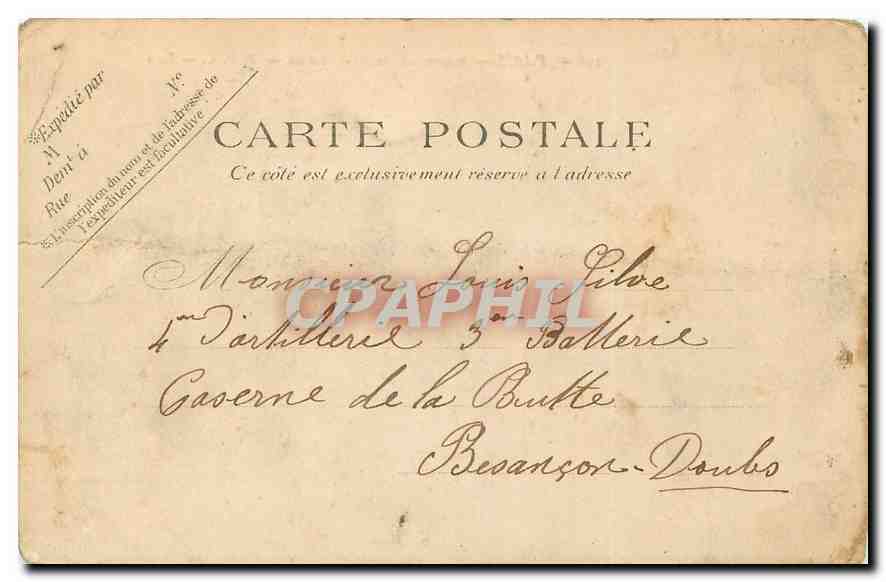 ※Expédié par
M N°
Dem^t à
Rue
※ L'inscription du nom et de l'adresse de
l'expéditeur est facultative
CARTE POSTALE
Ce côté est exclusivement réservé a l'adresse
Monsieur Louis
4em d'artillerie 3em Batterie
Caserne de la Butte
Besançon - Doubs
CPAPHIL